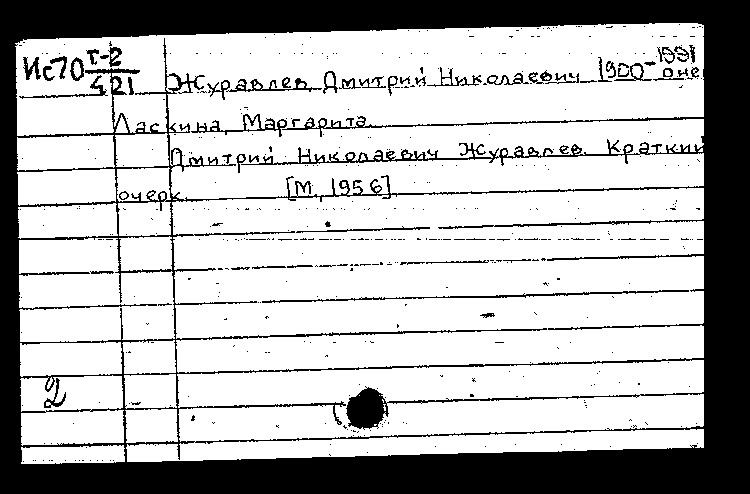 Ис70 Г-2 Журавлев, Дмитрий Николаевич 1900-1991 о нем
421
Ласкина, Маргарита.
Дмитрий Николаевич Журавлев. Краткий
очерк. [М., 1956]
2